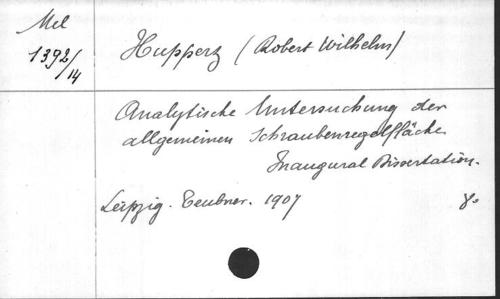 Mel
1392/14
Hupperz (Robert Wilhelm)
Analytische Untersuchung der
allgemeinen Schraubenregelfläche
Inaugural Dissertation.
Leipzig. Teubner. 1907 8°